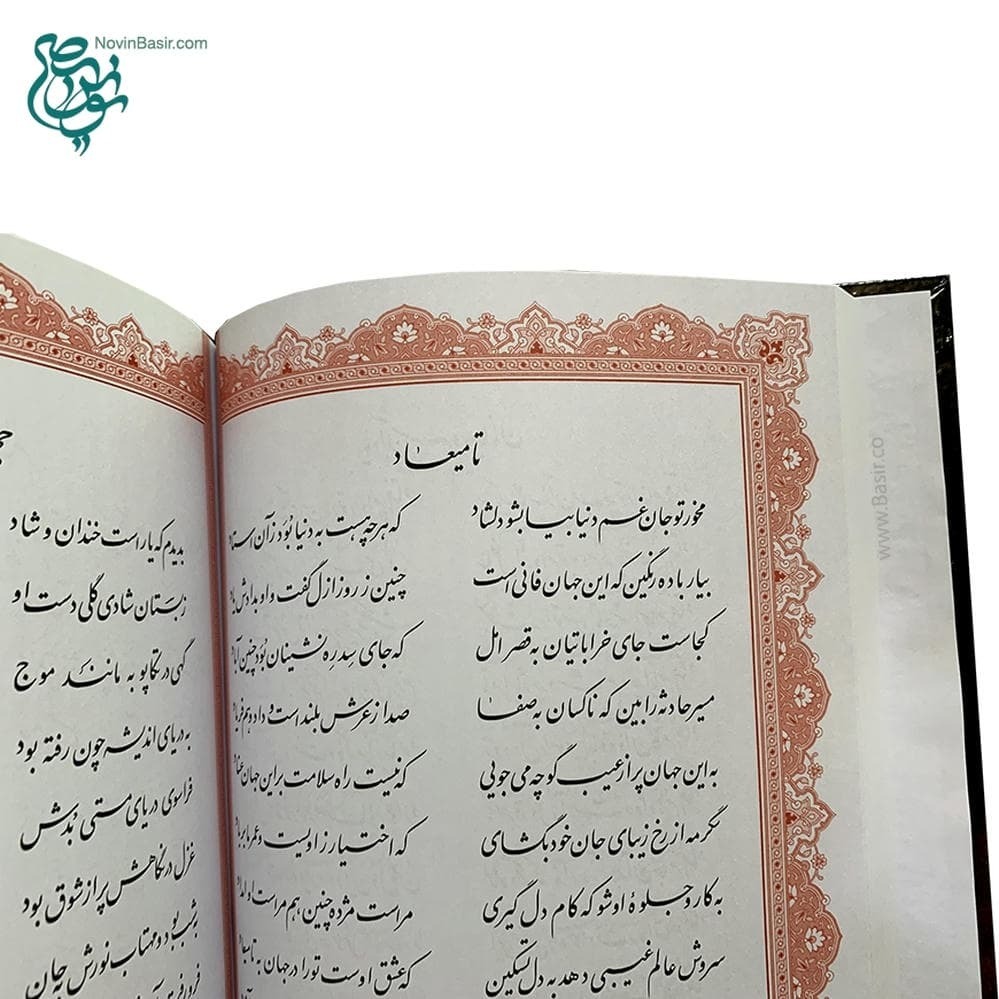 NovinBasir.com
نوین بصیر
تا میعاد
مخور تو جان غم دنیا بیا بشو دلشاد که هر چه هست به دنیا بُوَد ز آن
بیار باده رنگین که این جهان فانی است چنین ز روز ازل گفت و او بدادش
کجاست جای خراباتیان به قصر امل که جای سِدرِه نشینان بُوَد چنین
میر حادثه را بین که ناکسان به صفا صدا ز عرش بلند است و داد و هم
به این جهان پر از عیب گو چه می جویی که نیست راه سلامت بر این جهان
نگر مه از رخ زیبای جان خود بگشای که اختیار ز اویست و عمر ما
به کار و جلوهٔ او شو که کام دل گیری مر است مژده چنین هم مر است و
سروش عالم غیبی دهد به دل تسکین که عشق اوست تو را در جهان به
بدیدم که یار است خندان و شاد
ز بَستان شادی گلی دست او
گهی در تکاپو به مانند موج
به دریای اندیشه چون رفته بود
فراسوی دریای مستی بُدش
غزل در نگاهش پر از شوق بود
به شب بود و مهتاب نورش به جان
www.Basir.co